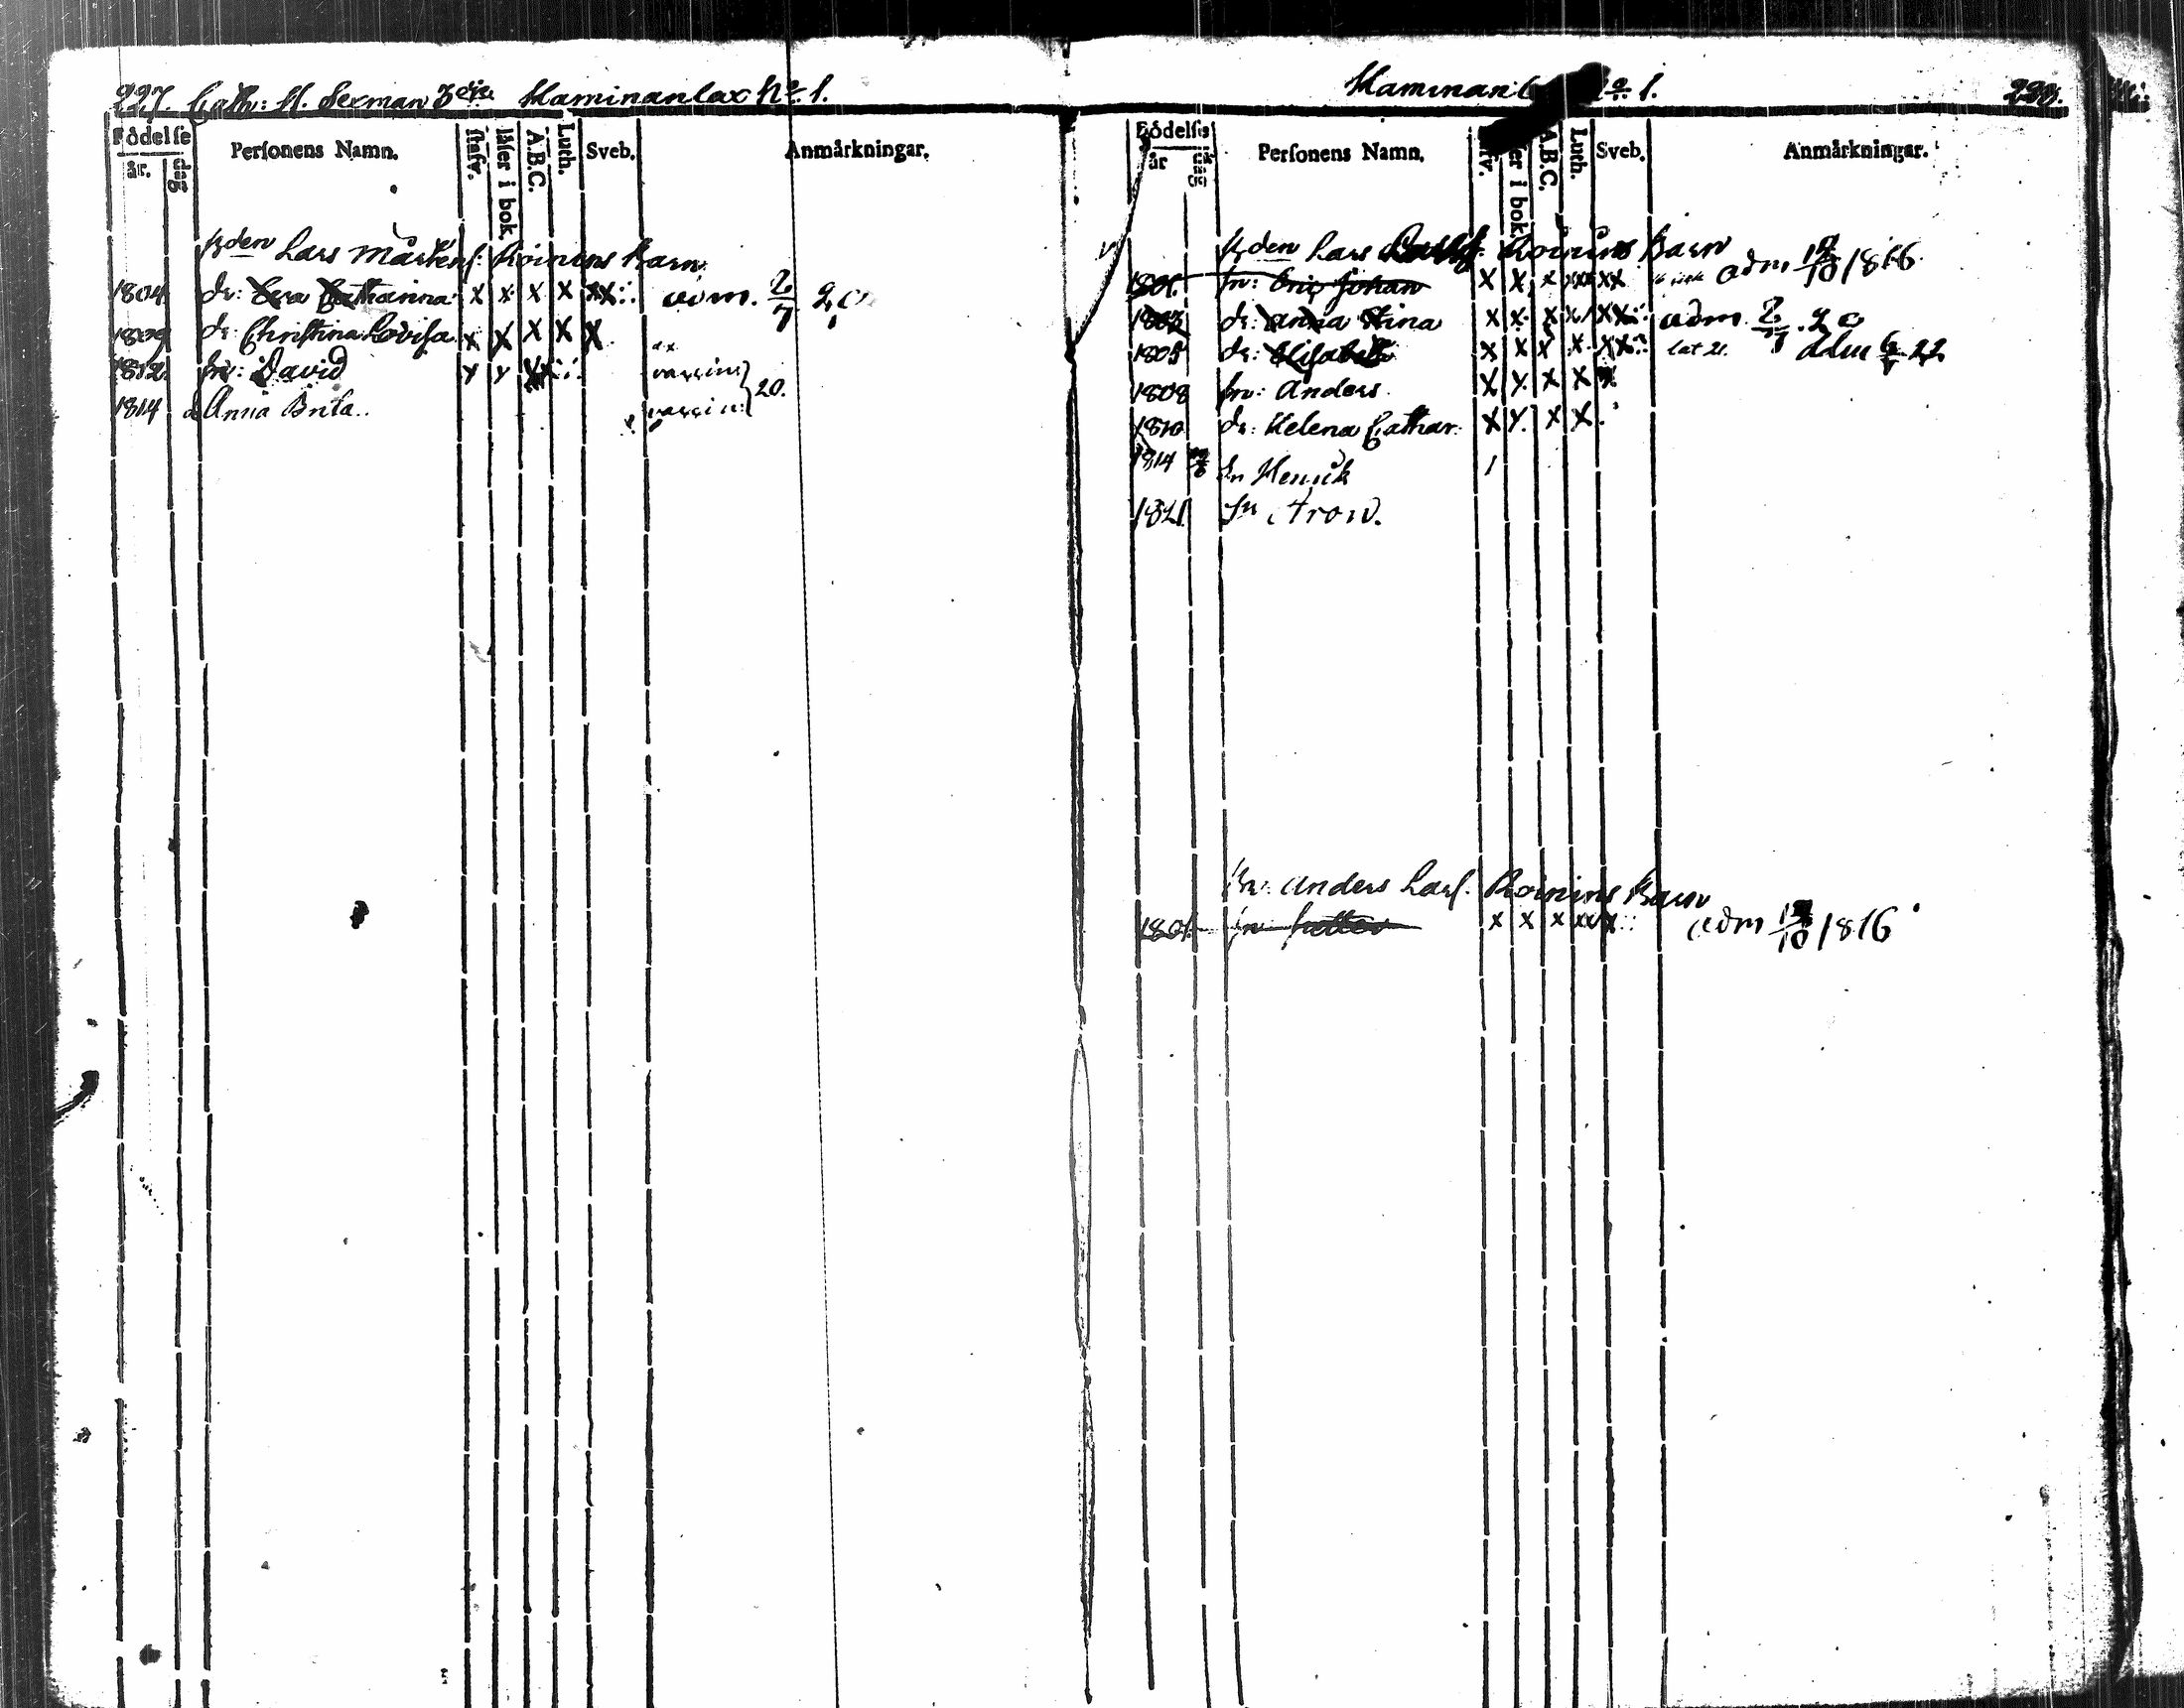 227. Cath: H. Sexman Haminanlax No 1.
Födelse
år. dag
Personens Namn.
stafv.
läser i bok.
A.B.C.
Luth.
Sveb.
Anmärkningar.
Bden Lars Mårtens: Roinens Barn
1804 dr: Eva Catharina x x x x xx adm. 2/7 20
1809 dr: Christina Lovisa x x x x x
1812 sn: David x x vaccin
1814 d Anna Brita.. vaccin: } 20.
Haminan No 1.
228.
Födelse
år dag
Personens Namn.
A.B.C.
Luth.
Sveb.
Anmärkningar.
Bden Lars Roinins Barn
1801. sn: Eric Johan x x x xx xx adm /10 1816.
1803 dr: Anna Stina x x x x xx adm. 2/7. 20
1805 dr: Elisabeth x x x x xx adm 22
1808 sn: Anders x x x x x
1810 dr: Helena Cathar: x x. x x.
1814 Sn Henrick /
1821 Sn Aron.
Bn: Anders Lars. Roinins Barn
1801. sn Petter x x x xx x adm /10 1816